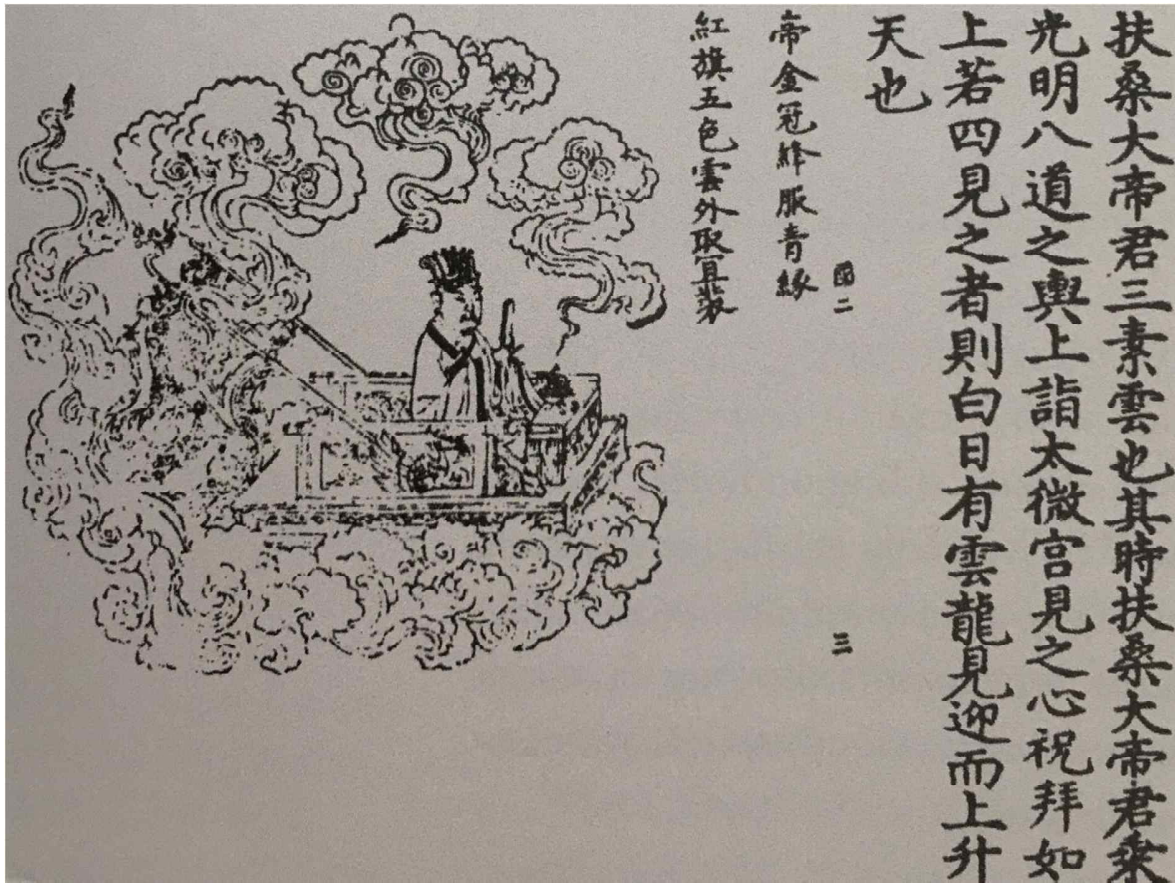 扶桑大帝君三素雲也其時扶桑大帝君乗
光明八道之輿上詣太微宮見之心祝拜如
上若四見之者則白日有雲龍見迎而上升
天也
國二
三
帝金冠絳服青緣
紅旗五色雲外取具裝